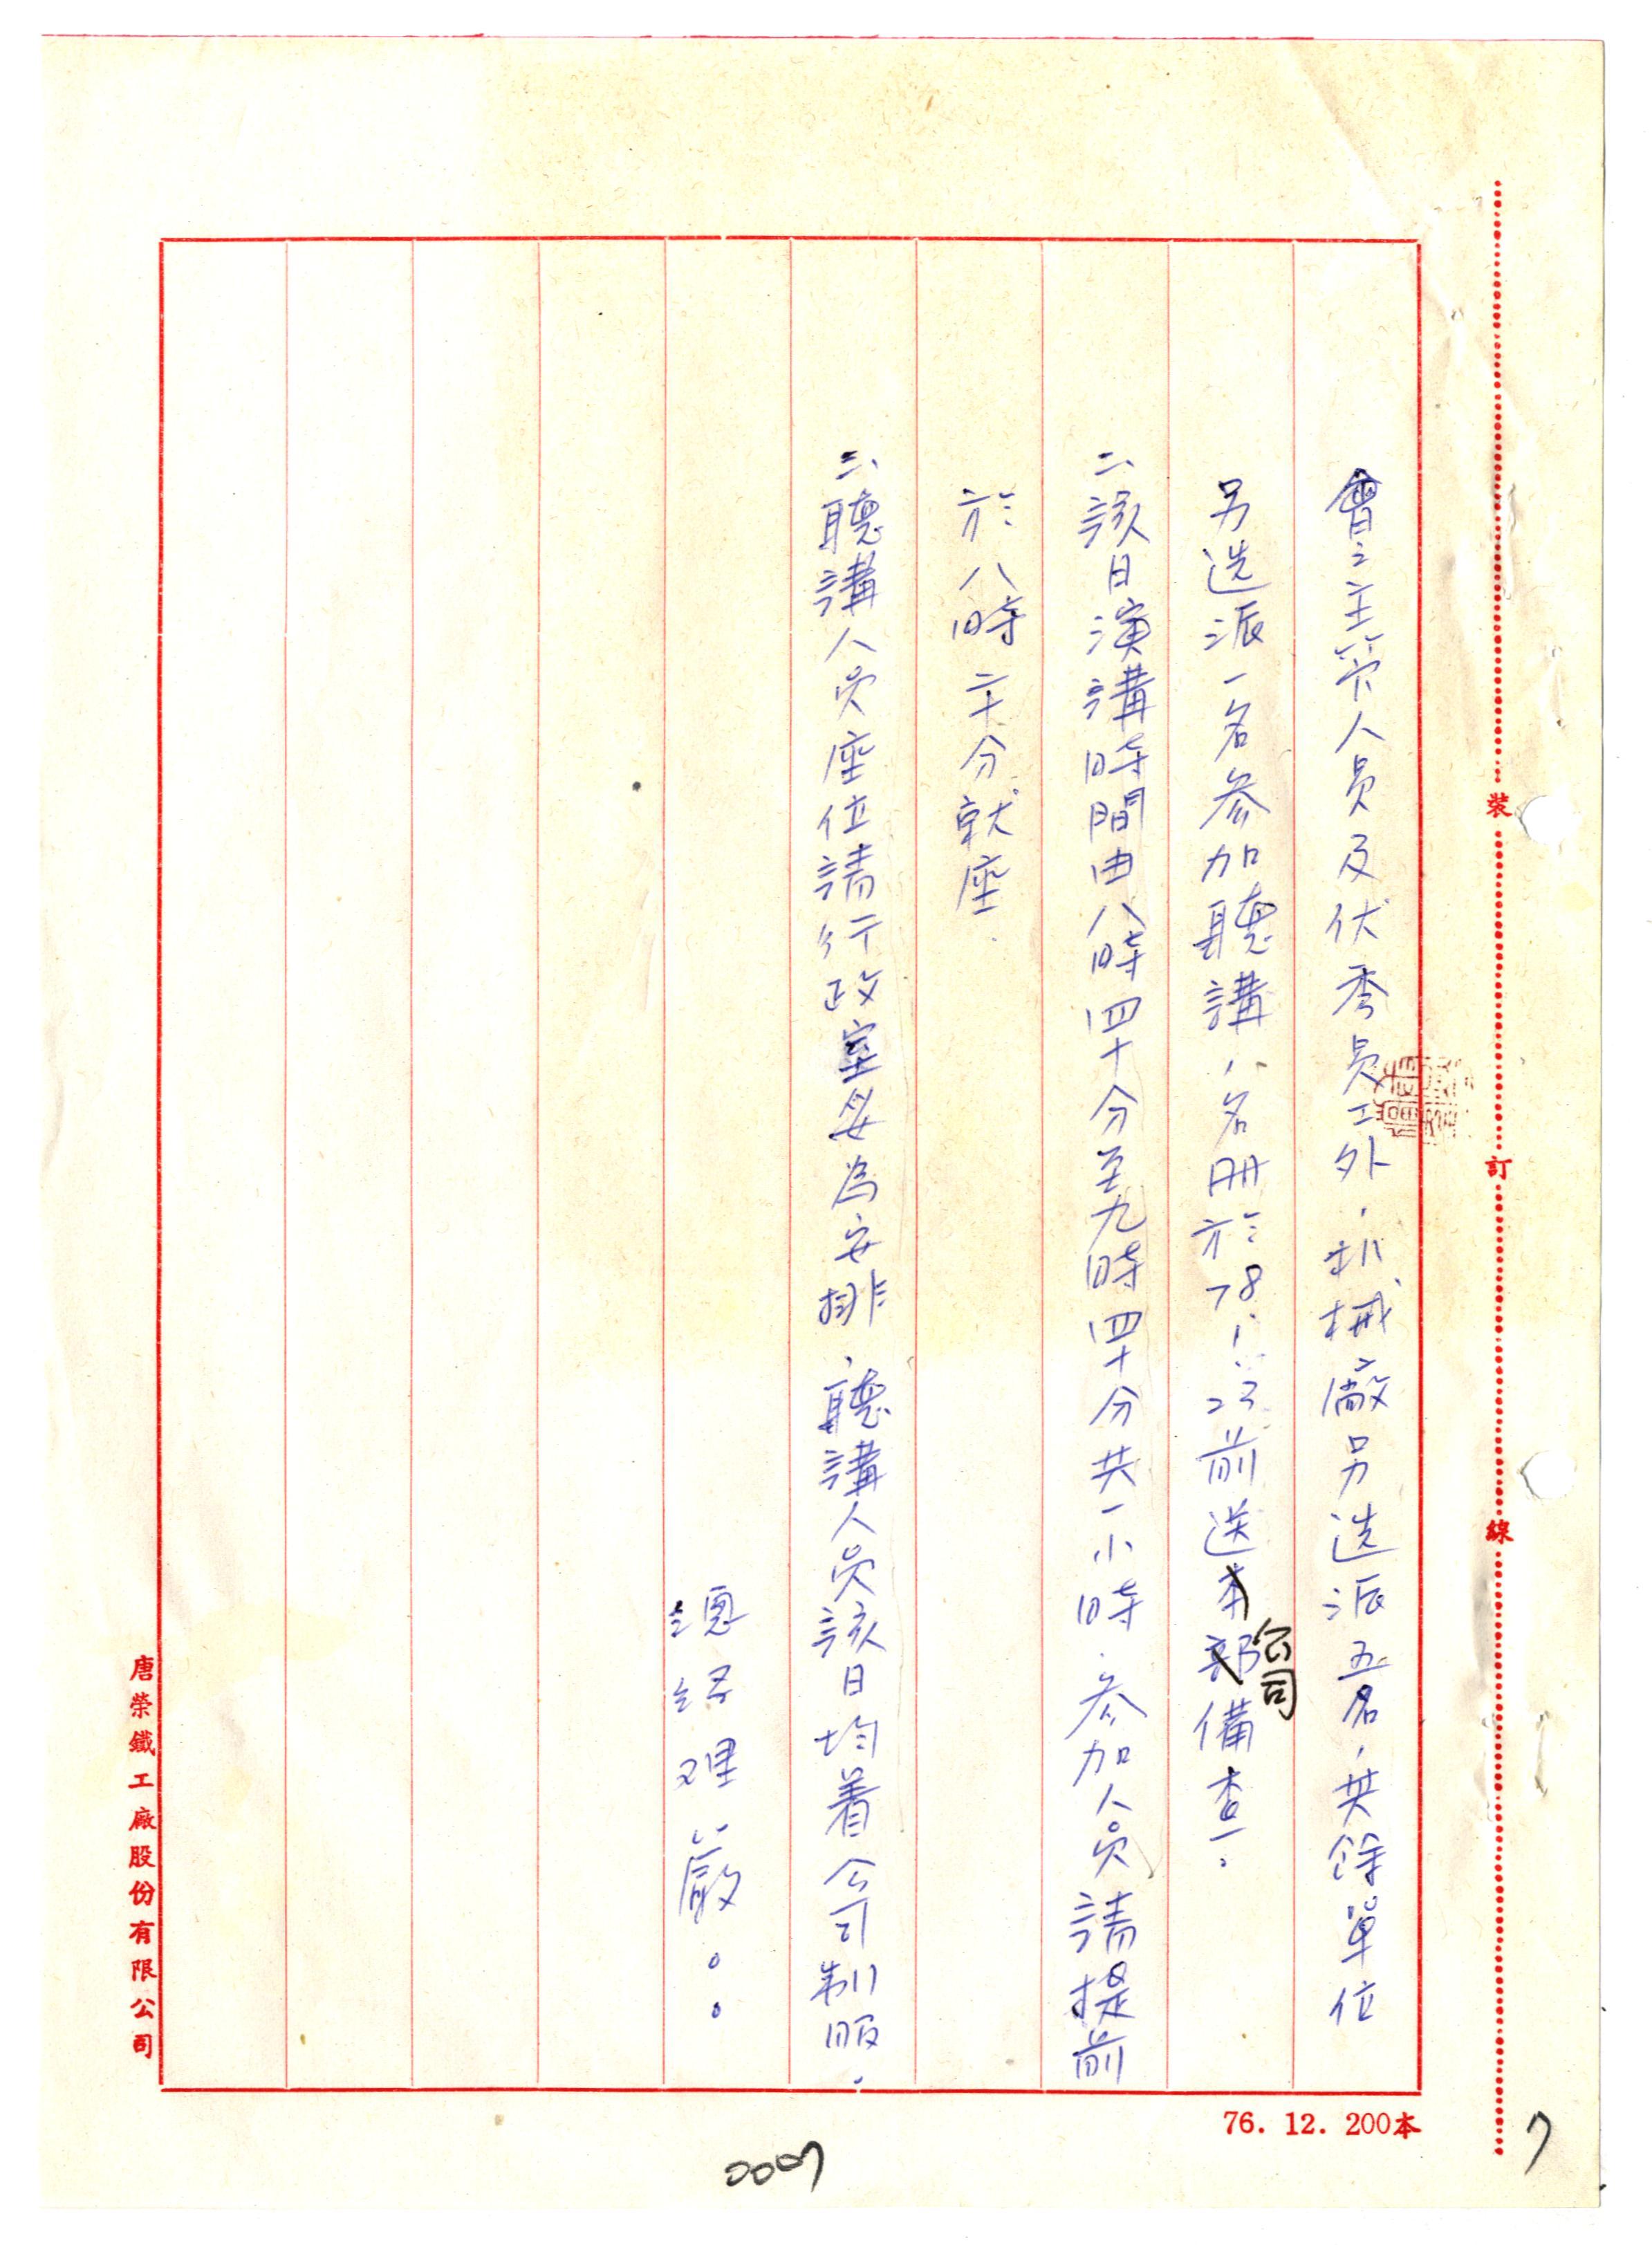 會之主管人员及优秀员工外，机械廠另选派五名，其餘單位
另选派一名参加聽講，名册於78.1.23前送本部公司備查。
二、該日演講時間由八時四十分至九時四十分共一小時，参加人员請提前
於八時二十分就座。
三、聽講人员座位請行政室妥為安排，聽講人员該日均着公司制服。
總經理 嚴○○
裝
訂
線
唐榮鐵工廠股份有限公司
76. 12. 200本
0007
7